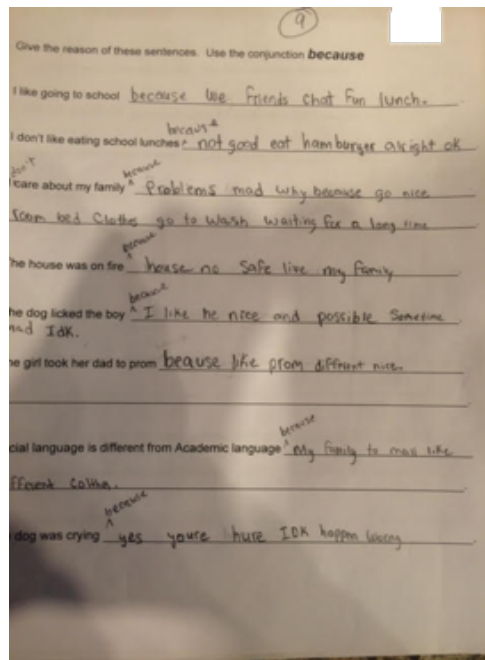 9
Give the reason of these sentences. Use the conjunction because
I like going to school because we friends chat fun lunch.
because
I don't like eating school lunches ^ not good eat hamburger alright ok
don't because
I care about my family ^ Problems mad why because go nice
room bed clothes go to wash waiting for a long time
because
he house was on fire ^ house no safe live my family
because
he dog licked the boy ^ I like he nice and possible Sometime
mad IDK.
he girl took her dad to prom beause like prom different nice.
because
cial language is different from Academic language ^ My family to mall like
fferent
because
dog was crying ^ yes youre hure IDK happen